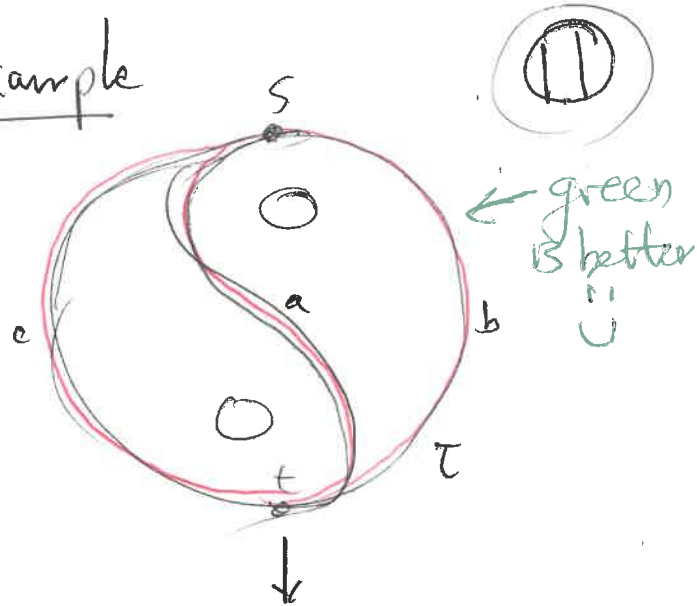 xample
S
← green
is better
a
b
c
τ
t